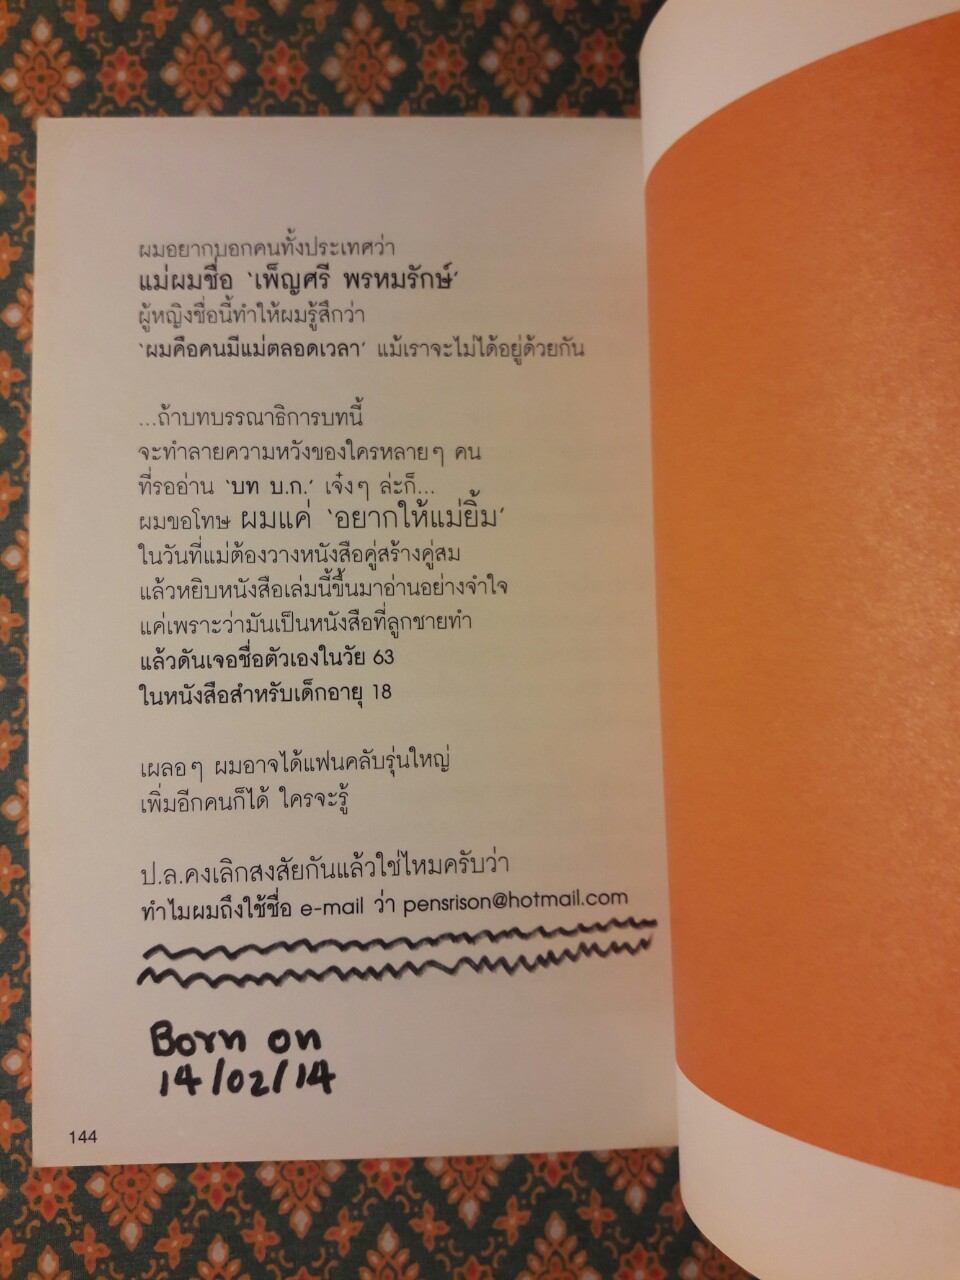 ผมอยากบอกคนทั้งประเทศว่า
แม่ผมชื่อ ‘เพ็ญศรี พรหมรักษ์’
ผู้หญิงชื่อนี้ทำให้ผมรู้สึกว่า
‘ผมคือคนมีแม่ตลอดเวลา’ แม้เราจะไม่ได้อยู่ด้วยกัน
...ถ้าบทบรรณาธิการบทนี้
จะทำลายความหวังของใครหลายๆ คน
ที่รออ่าน ‘บท บ.ก.’ เจ๋งๆ ล่ะก็...
ผมขอโทษ ผมแค่ ‘อยากให้แม่ยิ้ม’
ในวันที่แม่ต้องวางหนังสือคู่สร้างคู่สม
แล้วหยิบหนังสือเล่มนี้ขึ้นมาอ่านอย่างจำใจ
แค่เพราะว่ามันเป็นหนังสือที่ลูกชายทำ
แล้วดันเจอชื่อตัวเองในวัย 63
ในหนังสือสำหรับเด็กอายุ 18
เผลอๆ ผมอาจได้แฟนคลับรุ่นใหญ่
เพิ่มอีกคนก็ได้ ใครจะรู้
ป.ล.คงเลิกสงสัยกันแล้วใช่ไหมครับว่า
ทำไมผมถึงใช้ชื่อ e-mail ว่า pensrison@hotmail.com
Born on
14/02/14
144